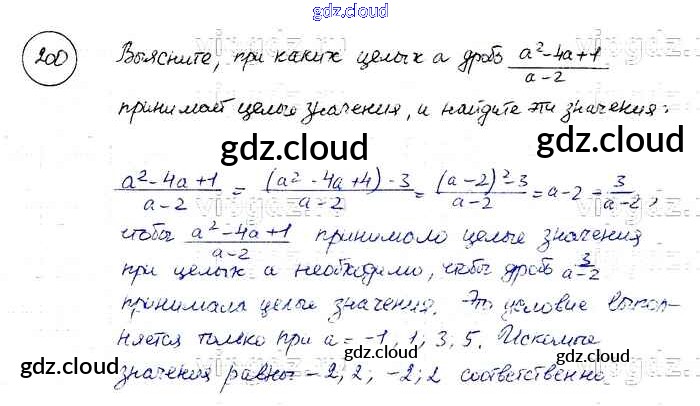 gdz.cloud
200 Выясните, при каких целых a дробь (a²-4a+1)/(a-2)
принимает целые значения, и найдите эти значения:
gdz.cloud gdz.cloud
(a²-4a+1)/(a-2) = ((a²-4a+4)-3)/(a-2) = ((a-2)²-3)/(a-2) = a-2 - 3/(a-2),
чтобы (a²-4a+1)/(a-2) принимало целые значения
при целых a необходимо, чтобы дробь 3/(a-2)
принимала целые значения. Это условие выпол-
няется только при a = -1, 1, 3, 5. Искомые
gdz.cloud gdz.cloud gdz.cloud
значения равны -2; 2; -2; 2 соответственно